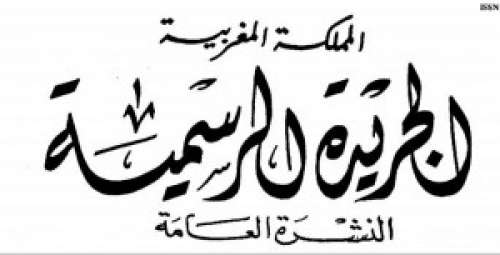 ISSN
المملكة المغربية
الجريدة الرسمية
النشرة العامة